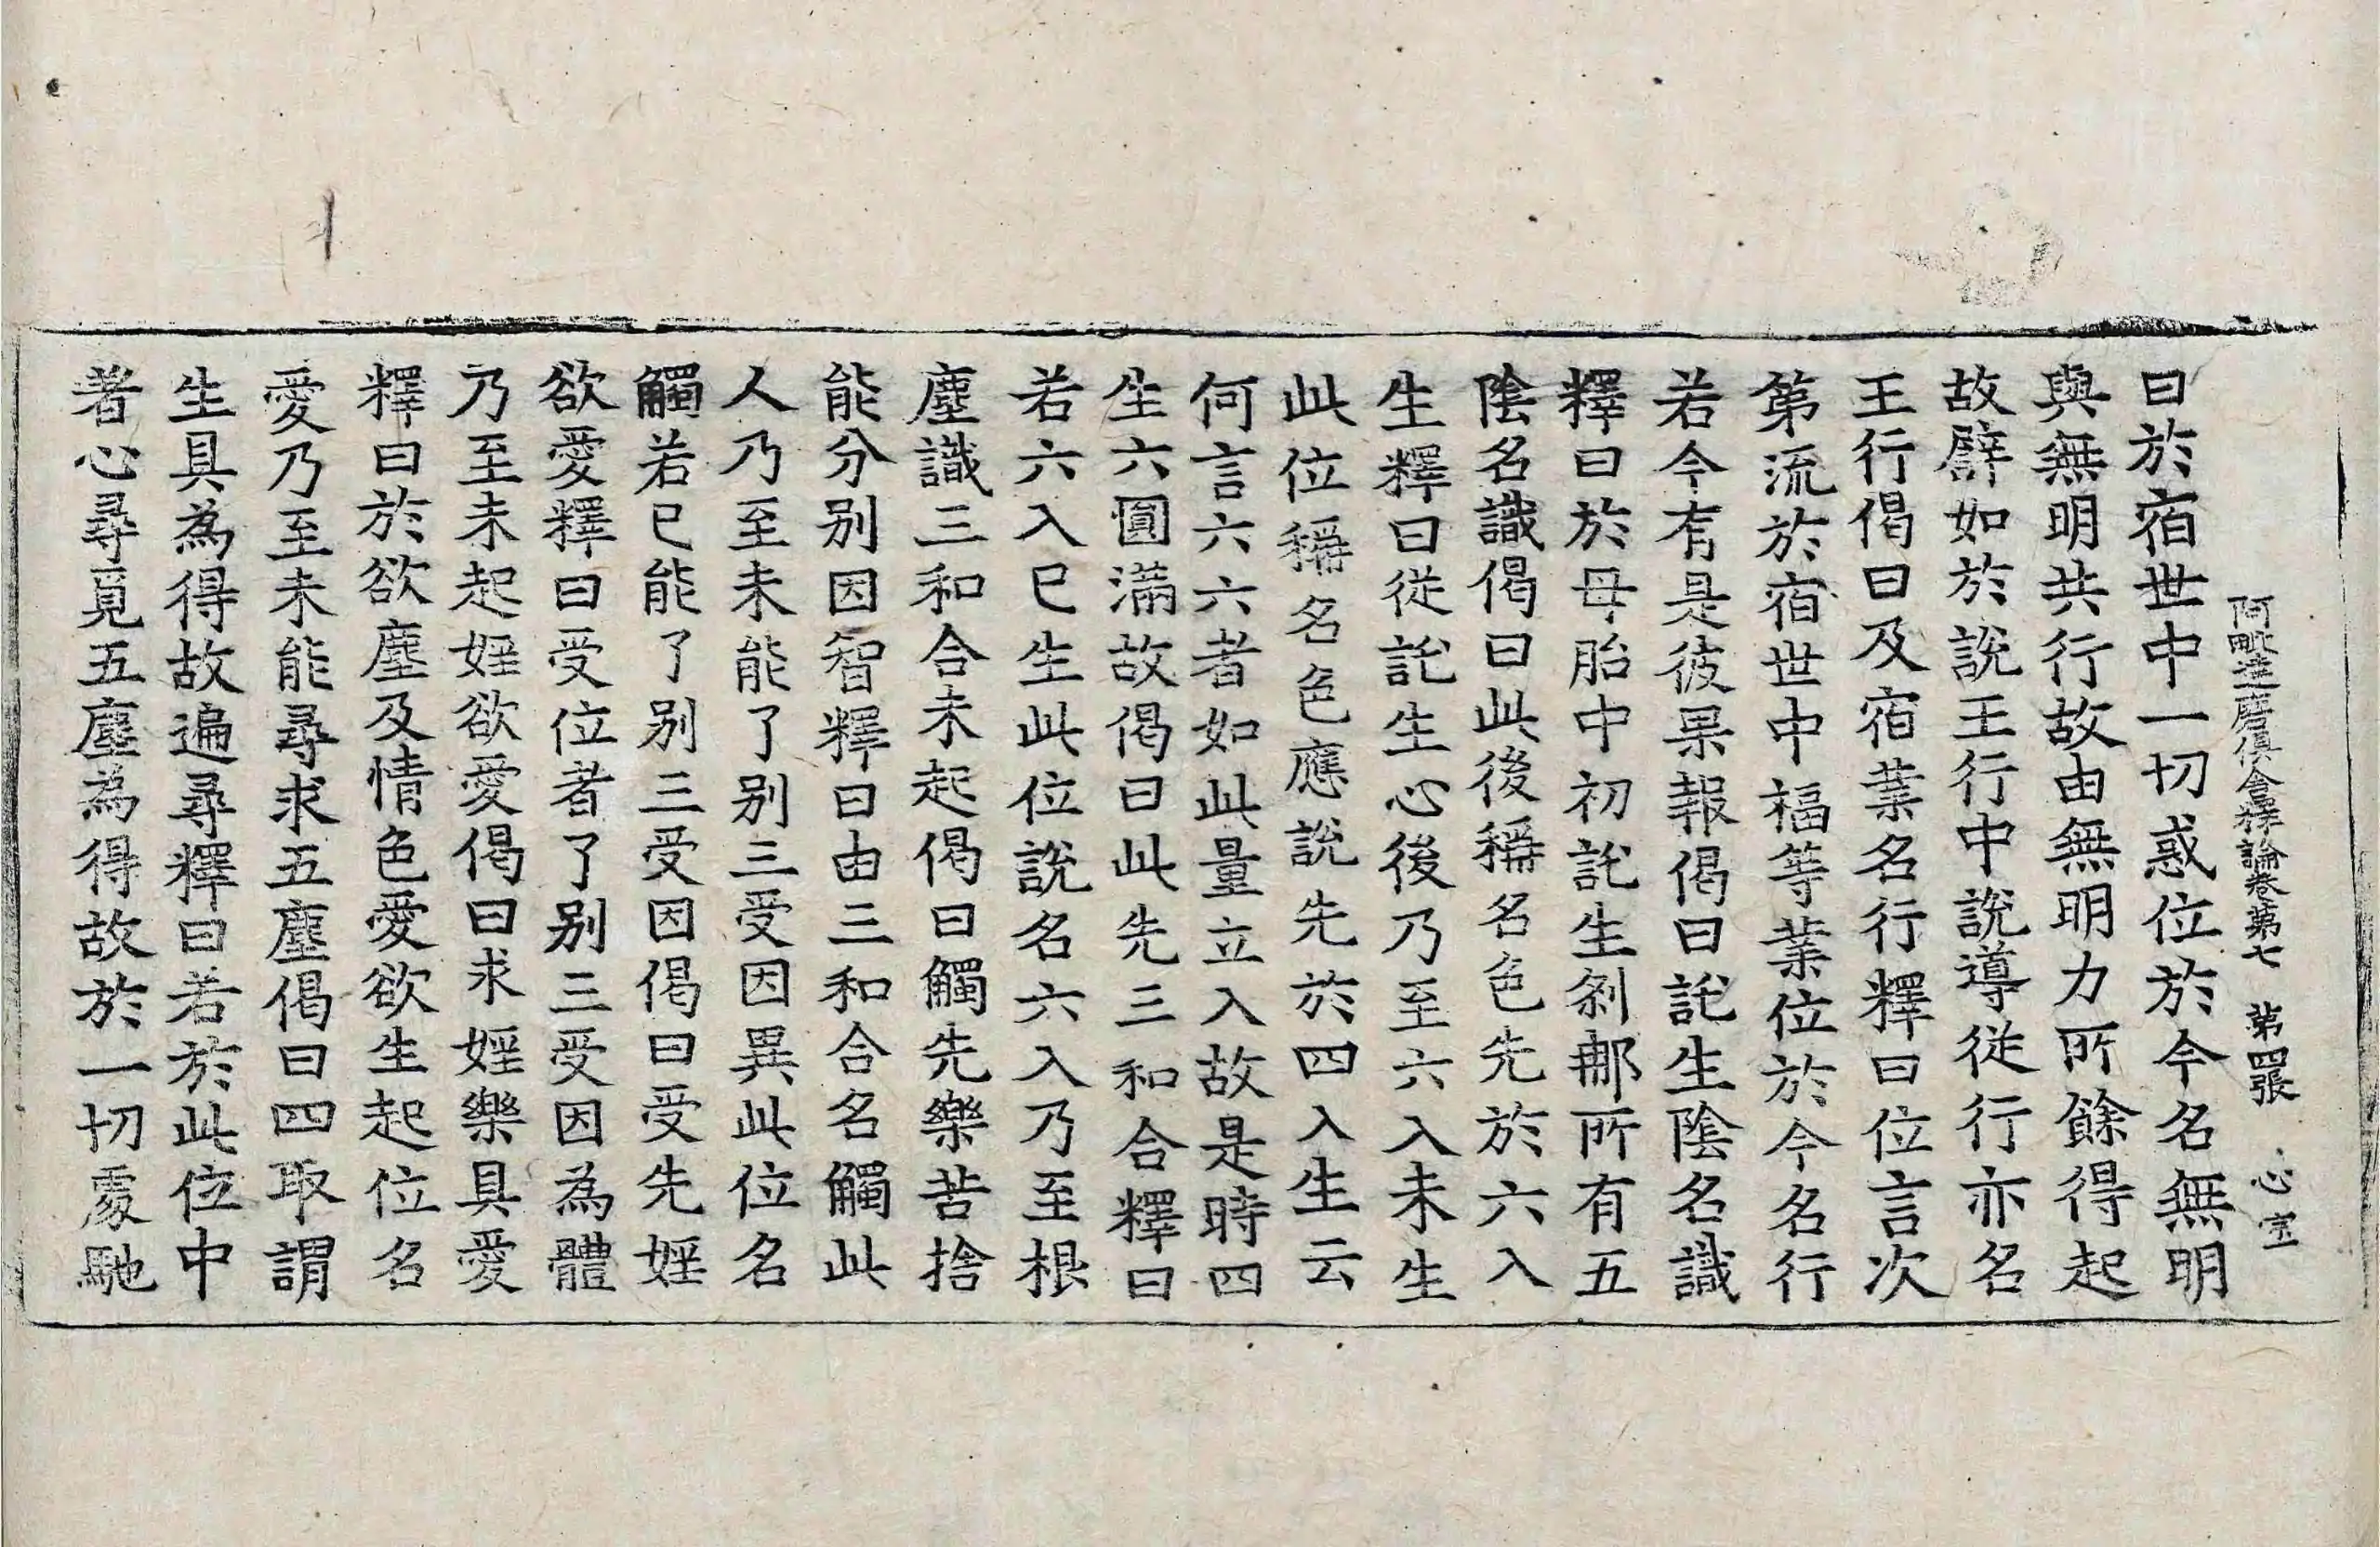 阿毗達磨俱舍釋論卷第七 第四張 心
曰於宿世中一切惑位於今名無明
與無明共行故由無明力所餘得起
故譬如於說王行中說導從行亦名
王行偈曰及宿業名行釋曰位言次
第流於宿世中福等業位於今名行
若今有是彼果報偈曰託生陰名識
釋曰於母胎中初託生剎那所有五
陰名識偈曰此後稱名色先於六入
生釋曰從託生心後乃至六入未生
此位稱名色應說先於四入生云
何言六六者如此量立入故是時四
生六圓滿故偈曰此先三和合釋曰
若六入已生此位說名六入乃至根
塵識三和合未起偈曰觸先樂苦捨
能分別因智釋曰由三和合名觸此
人乃至未能了別三受因異此位名
觸若已能了別三受因偈曰受先婬
欲愛釋曰受位者了別三受因為體
乃至未起婬欲愛偈曰求婬樂具愛
釋曰於欲塵及情色愛欲生起位名
愛乃至未能尋求五塵偈曰四取謂
生具為得故遍尋釋曰若於此位中
著心尋覓五塵為得故於一切處馳